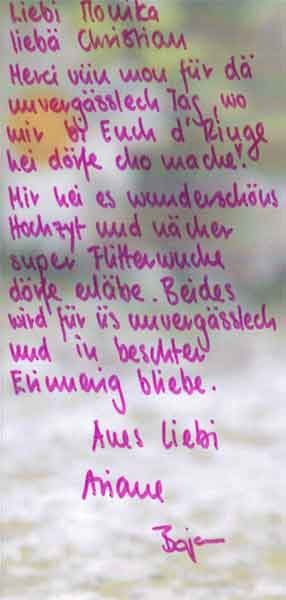 Liebi Monika
liebä Christian
Merci viu mou für dä
unvergässlech Tag, wo
mir by Euch d'Ringe
hei dörfe cho mache!
Mir hei es wunderschöns
Hochzyt und nächer
super Flitterwuche
dörfe erläbe. Beides
wird für üs unvergässlech
und in beschter
Erinnerig bliebe.
Aues Liebi
Ariane